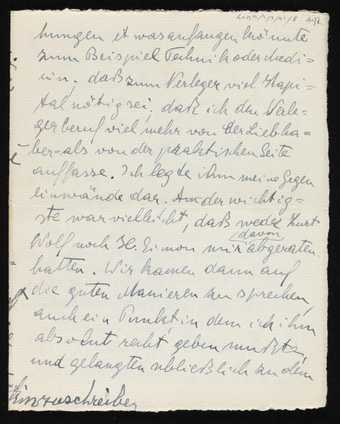 hungen etwas anfangen könnte
zum Beispiel Technik oder Medi=
zin, daß zum Verleger viel Kapi=
tal nötig sei, daß ich den Verle=
gerberuf viel mehr von der Liebha=
ber= als von der praktischen Seite
auffasse. Ich legte ihm meine Gegen
einwände dar. Am der wichtig=
ste war vielleicht, daß weder Kurt
Wolf noch Hl. Simon mir davon abgeraten
hatten. Wir kamen dann auf
die guten Manieren zu sprechen,
auch ein Punkt, in dem ich ihm
absolut recht geben mußte,
und gelangten schließlich zu dem
hinzuschreiben